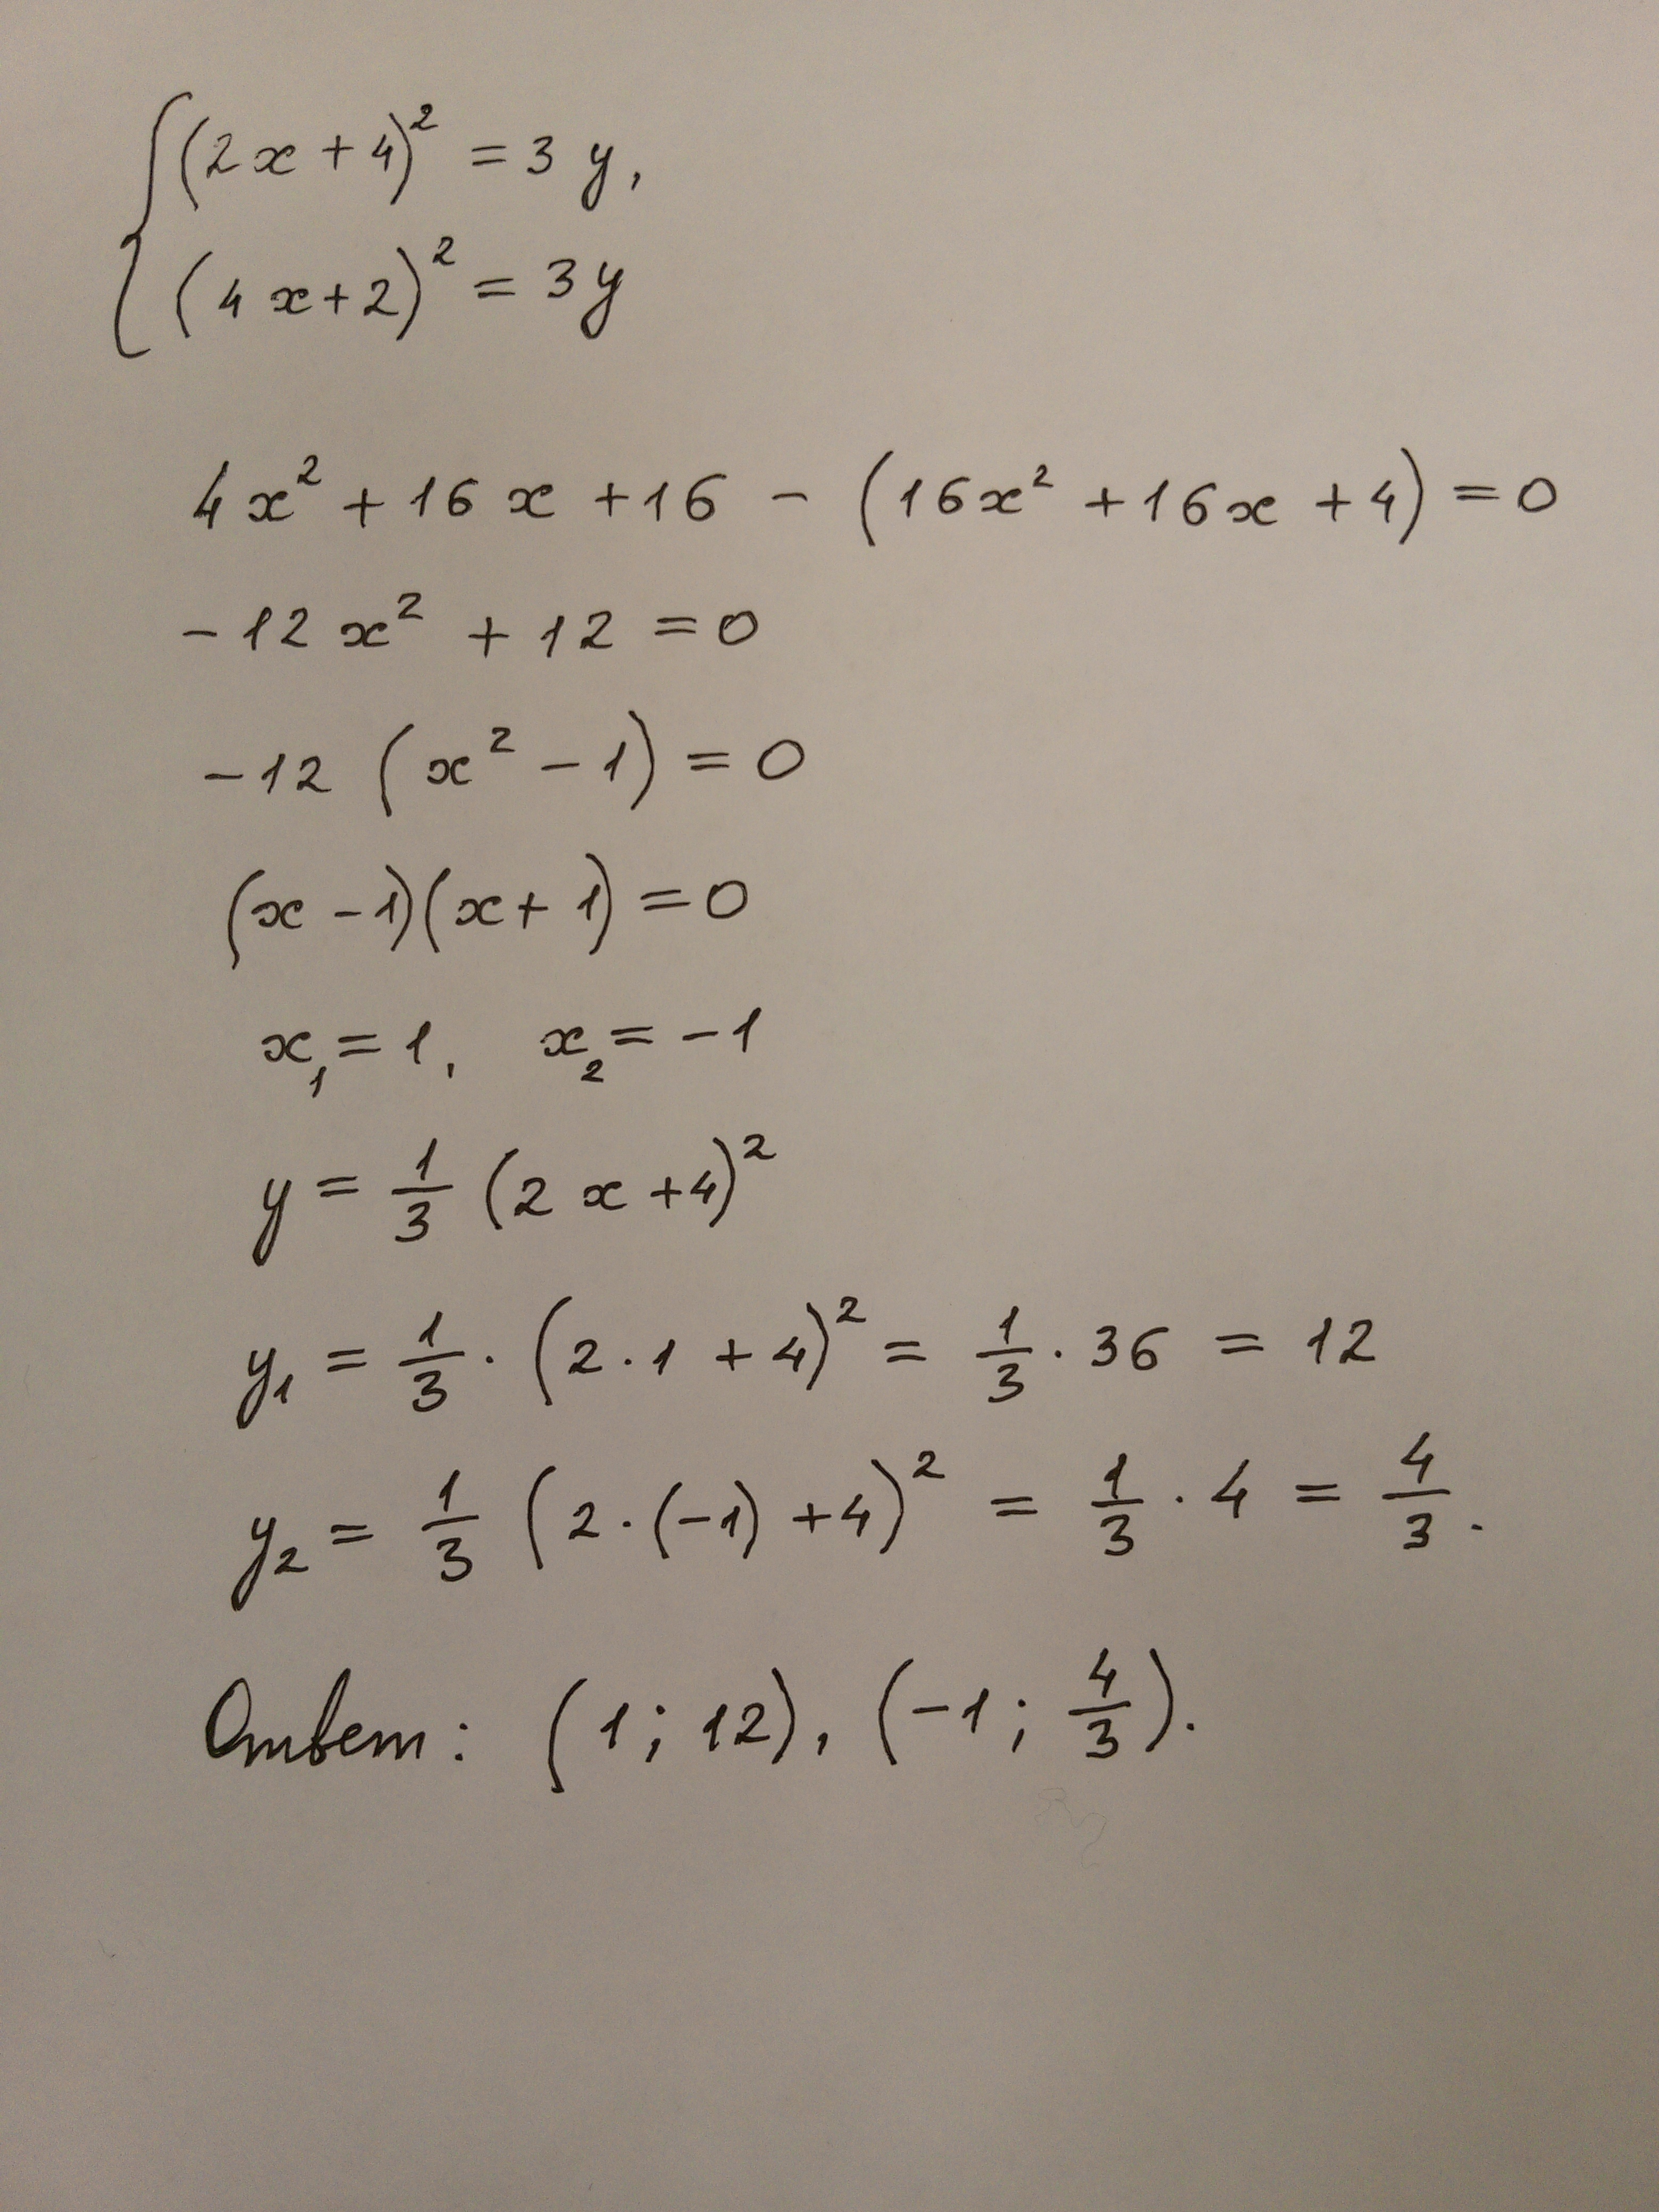 { (2x + 4)² = 3y,
(4x + 2)² = 3y
4x² + 16x + 16 - (16x² + 16x + 4) = 0
-12x² + 12 = 0
-12 (x² - 1) = 0
(x - 1)(x + 1) = 0
x₁ = 1, x₂ = -1
y = 1/3 (2x + 4)²
y₁ = 1/3 · (2 · 1 + 4)² = 1/3 · 36 = 12
y₂ = 1/3 (2 · (-1) + 4)² = 1/3 · 4 = 4/3.
Ответ: (1; 12), (-1; 4/3).